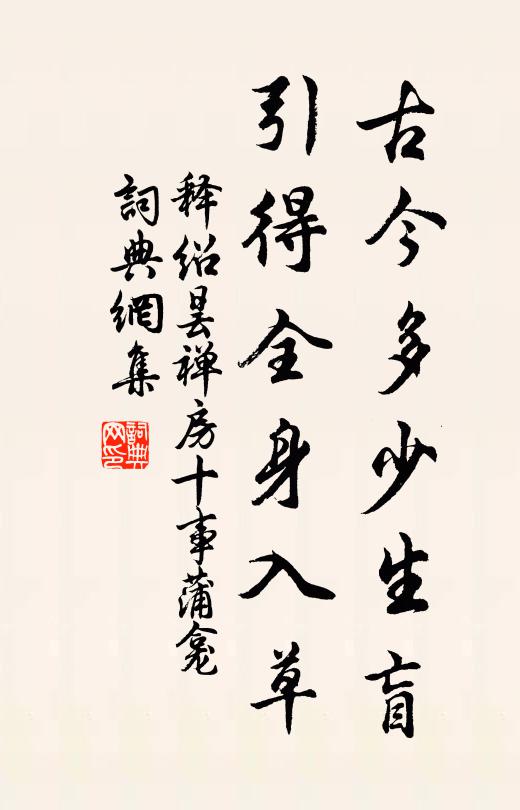 古今多少生盲
引得全身入草
释绍昙禅房十事蒲龛
詞典網集
詞典网印